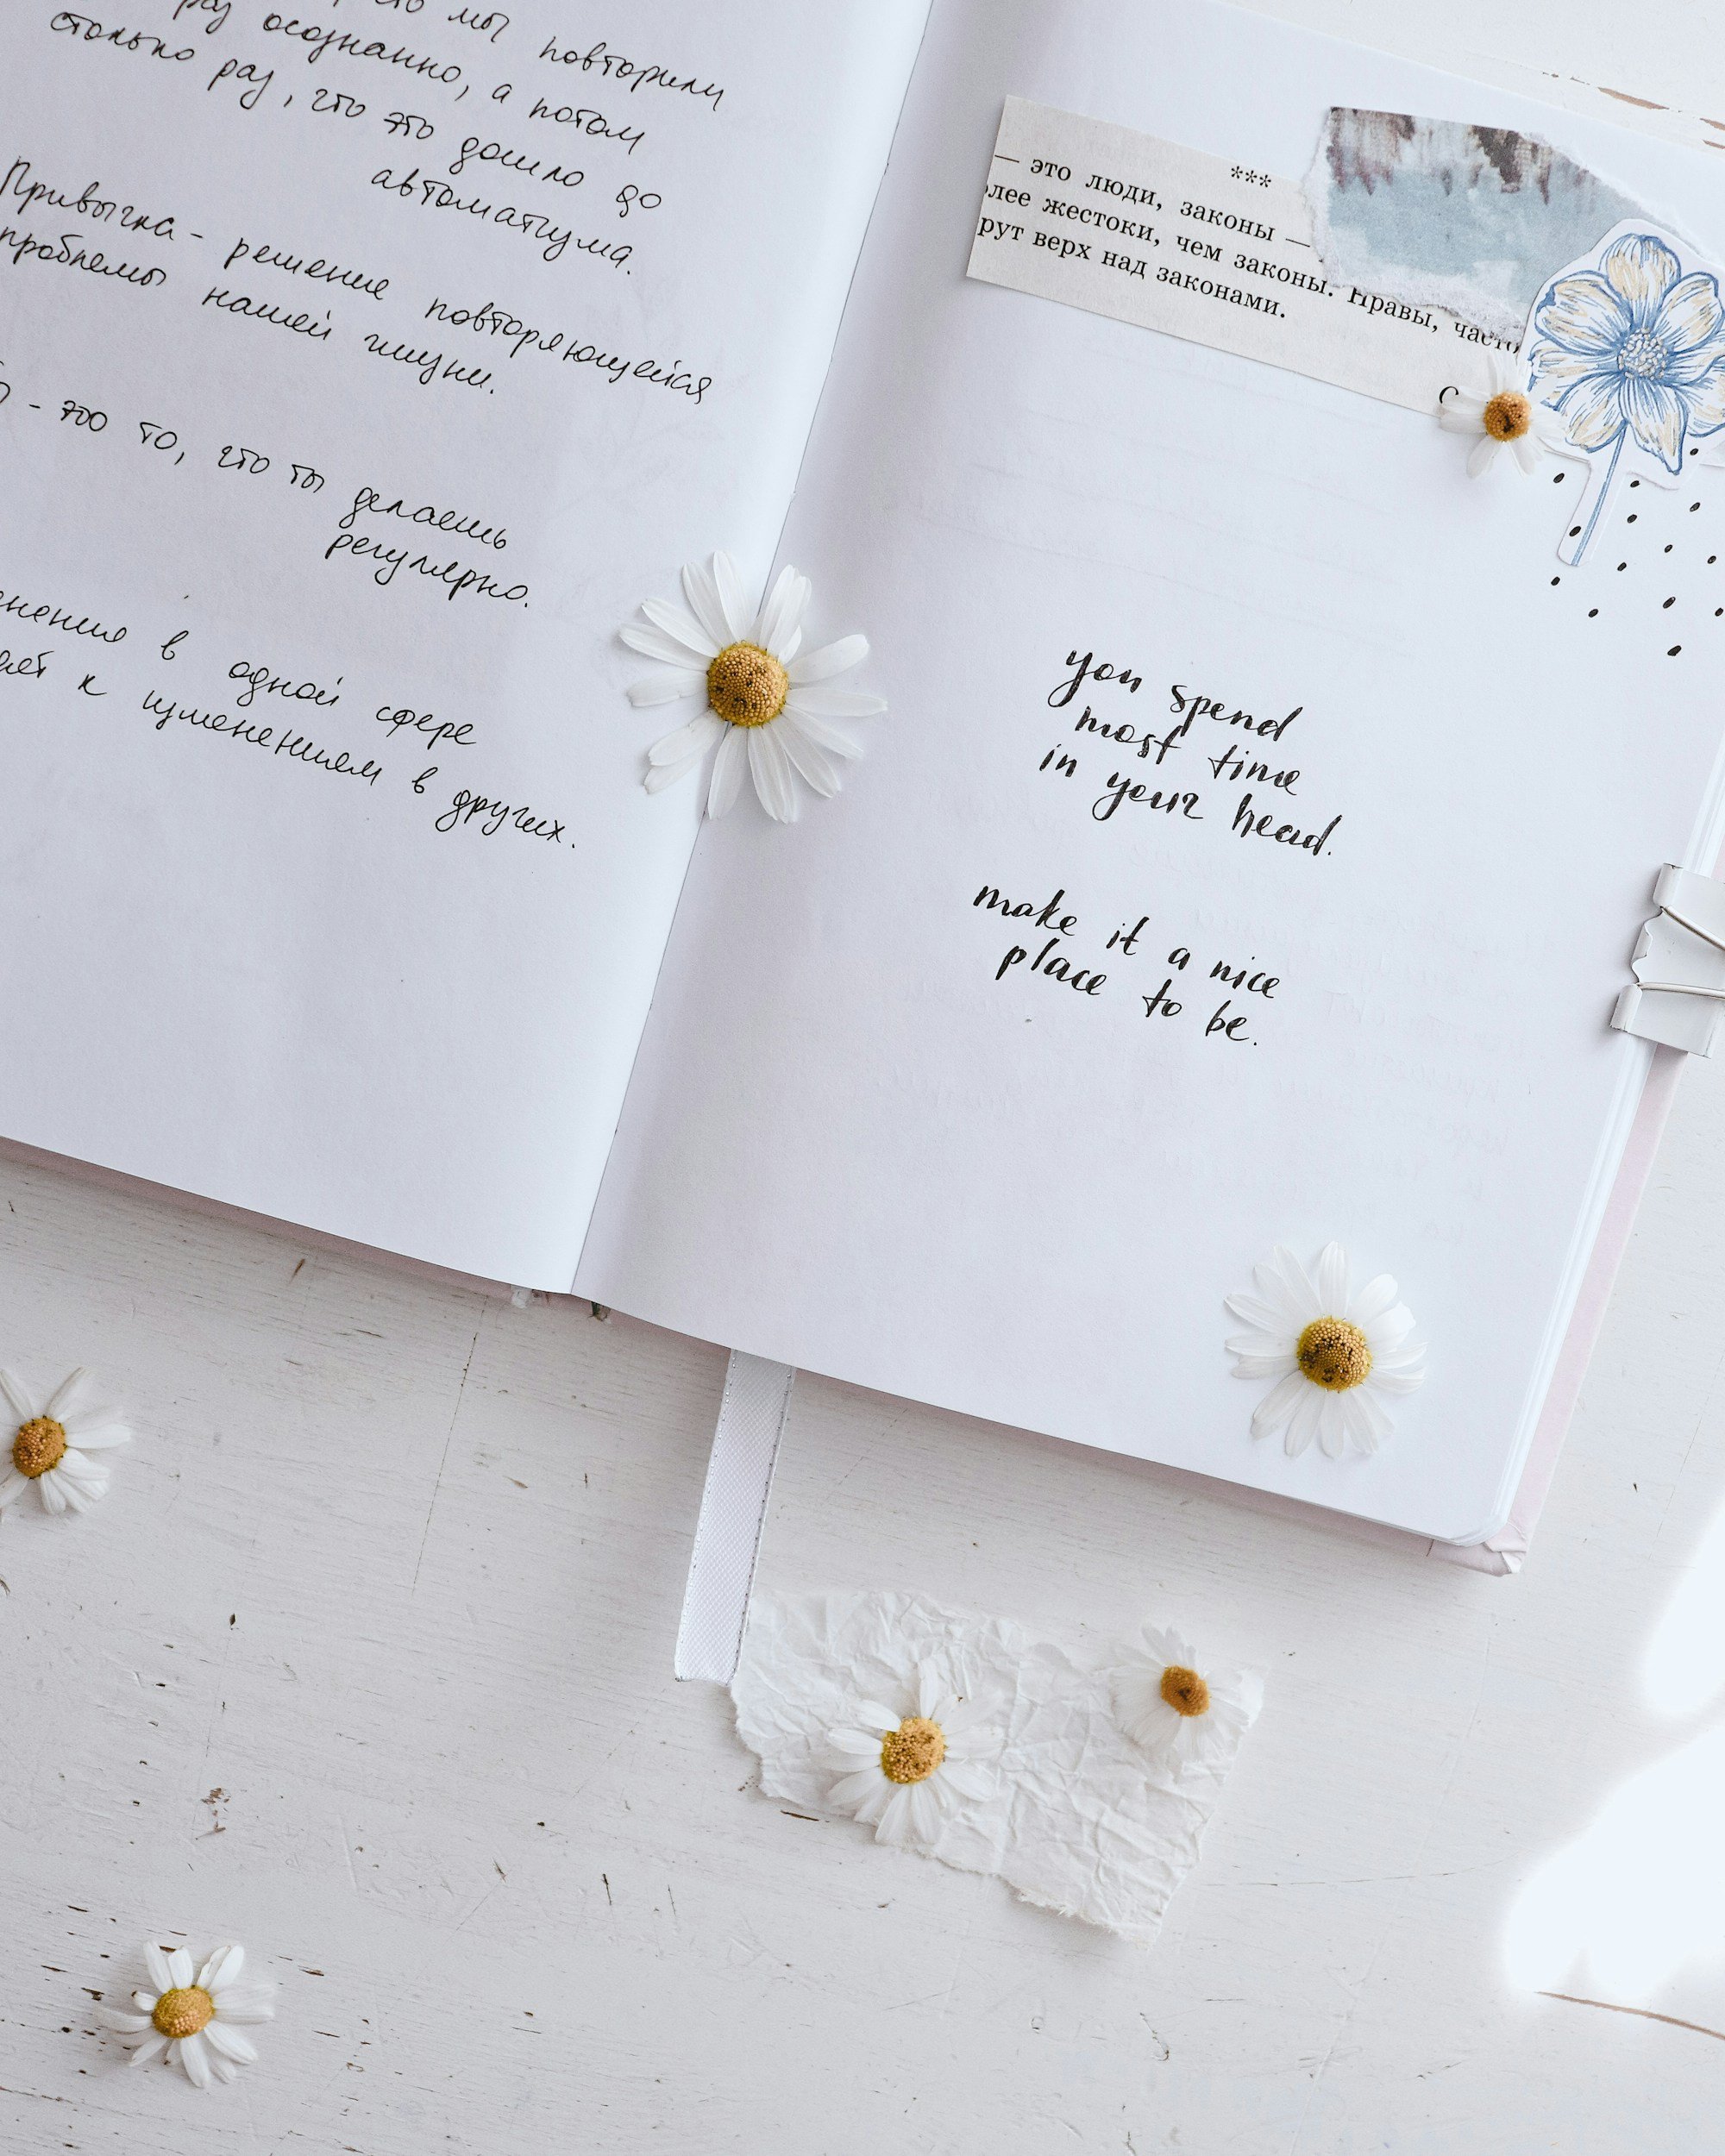 что мы повторили
раз осознанно, а потом
столько раз, что это дошло до
автоматизма.
Привычка - решение повторяющейся
проблемы нашей жизни.
- это то, что ты делаешь
регулярно.
в одной сфере
к изменениям в других.
***
— это люди, законы —
лее жестоки, чем законы. Нравы, часто
рут верх над законами.
С
you spend
most time
in your head.
make it a nice
place to be.